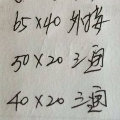 65×40 外接
50×20 三通
40×20 三通